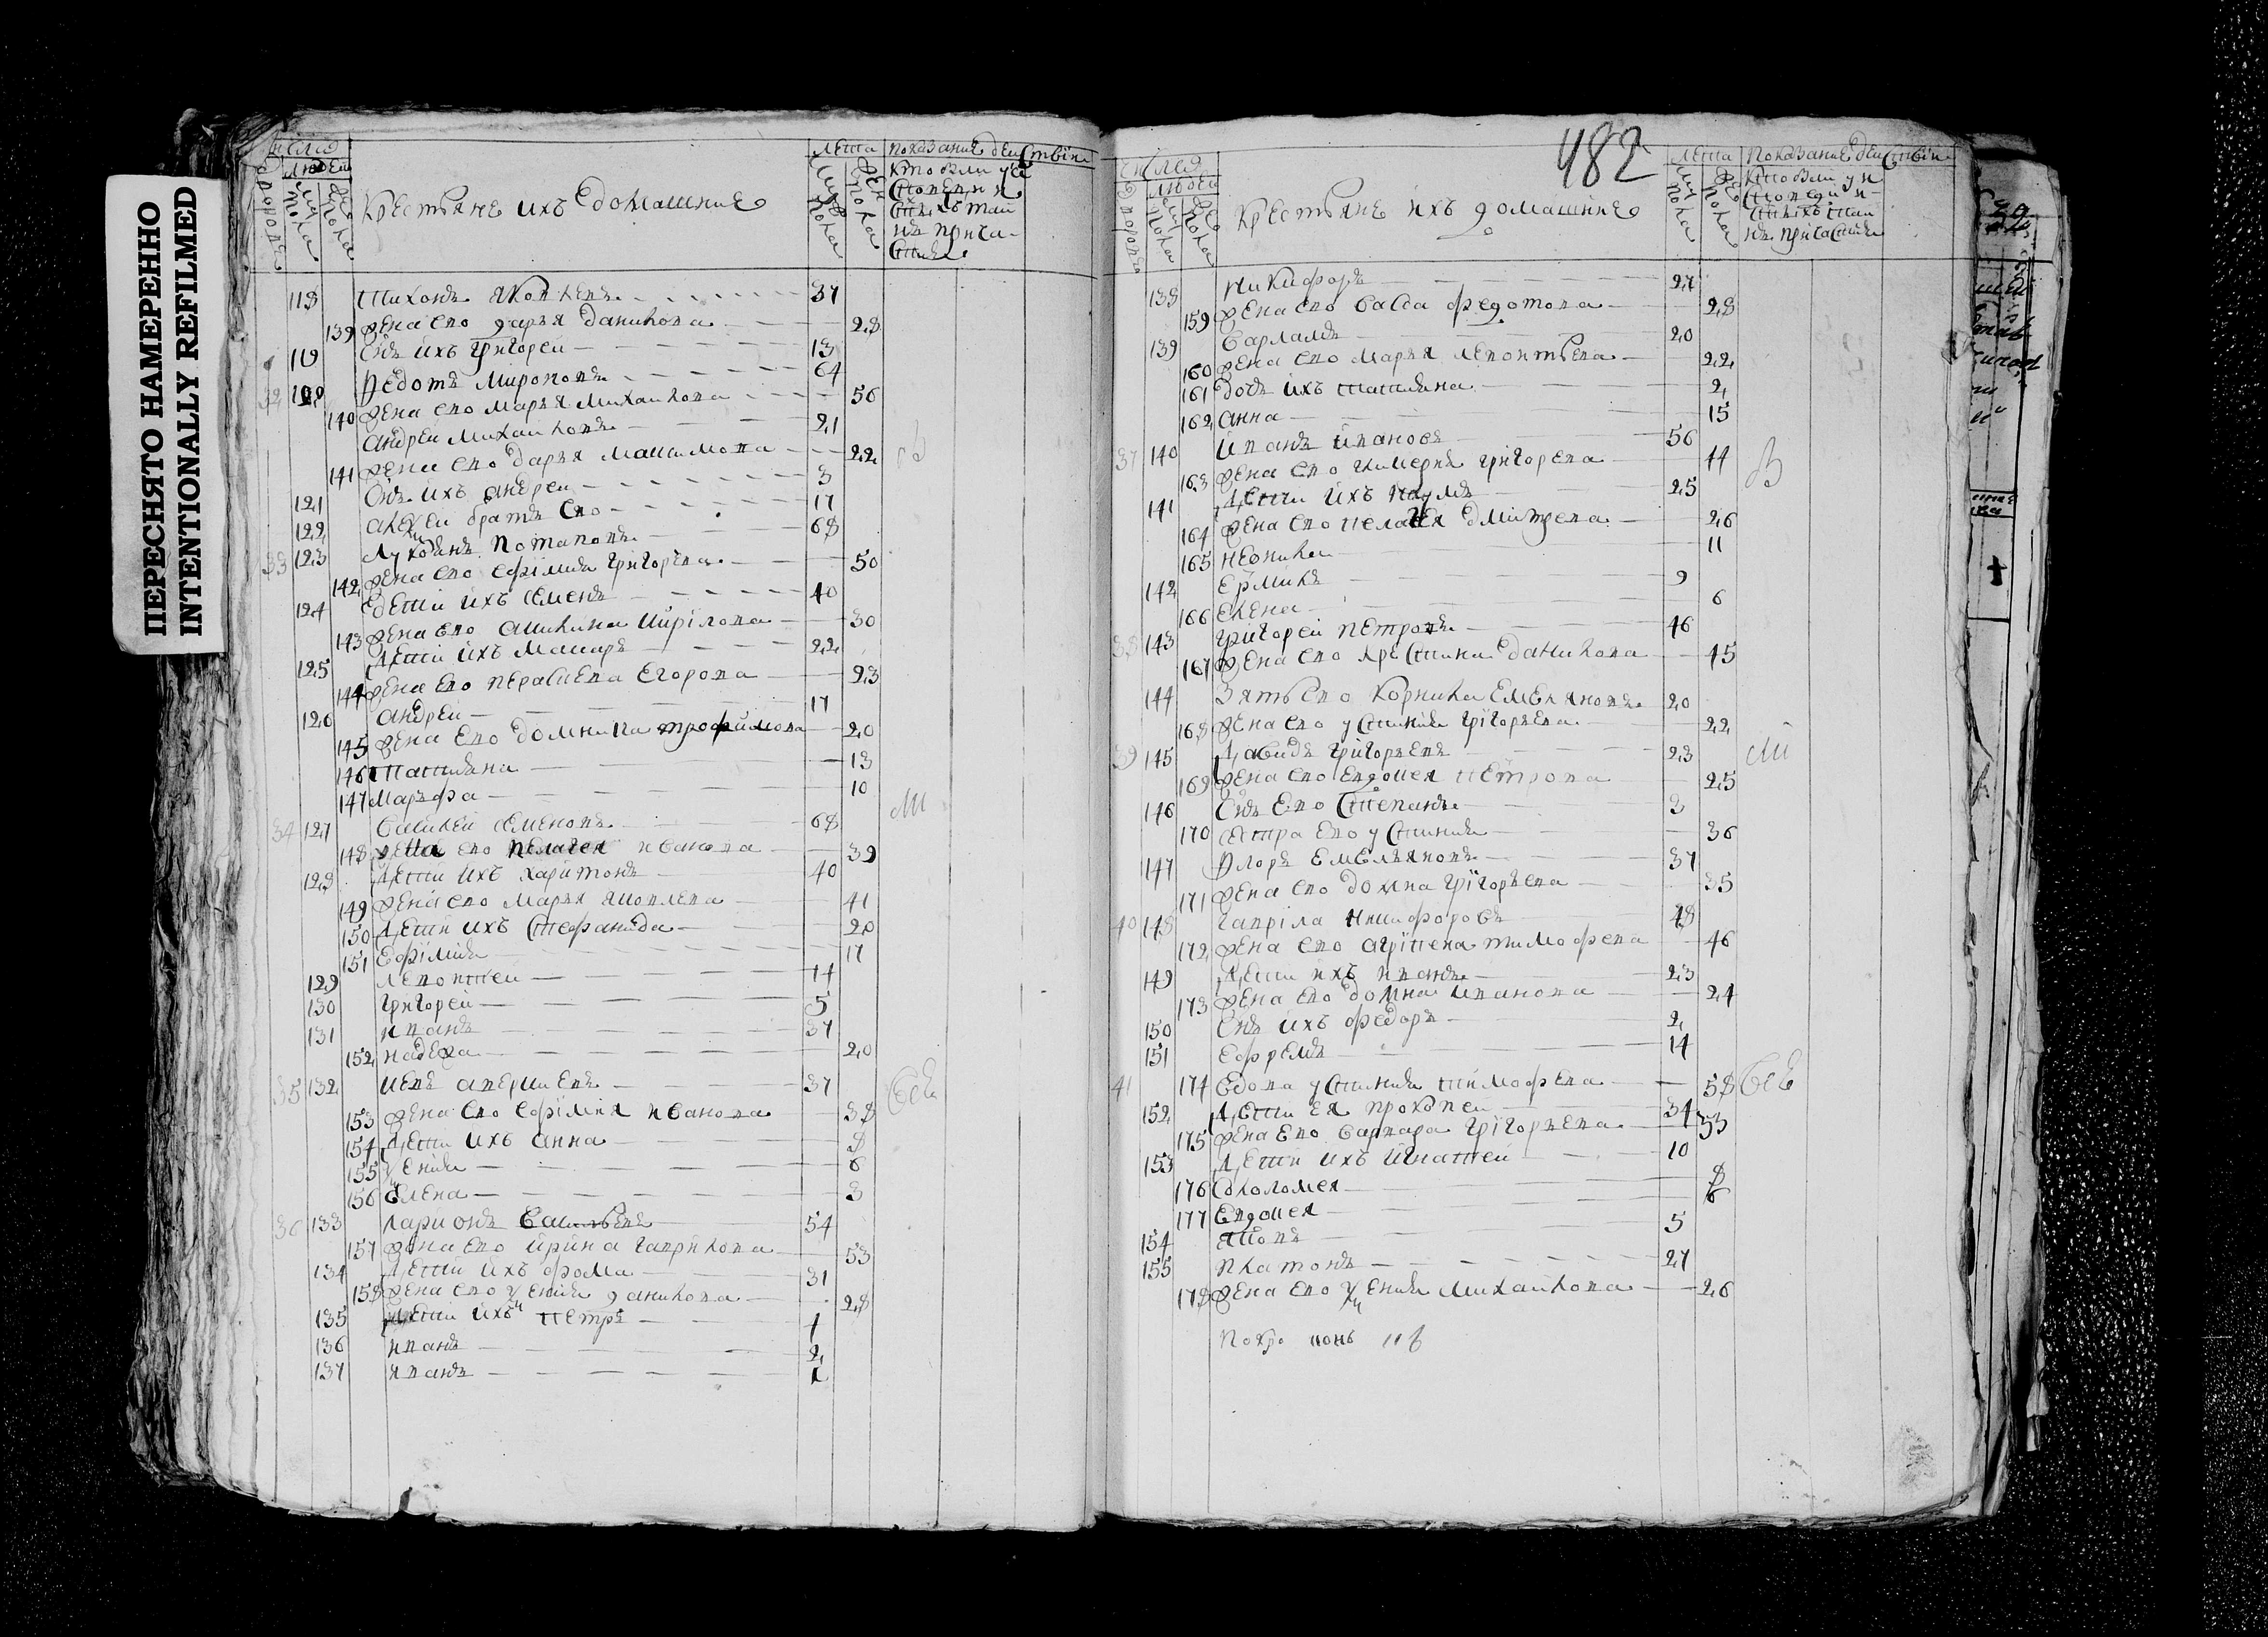 ПЕРЕСНЯТО НАМЕРЕННО
INTENTIONALLY REFILMED
Число
людей
лета
показание действия
Крестьяне ихъ домашние
кто были у и
споведи и
святыхъ таи
нъ прича
стия
118 Тихонъ Яковлевъ 37
139 жена ево дарья данилова 28
119 Снъ ихъ григореи 13
32 120 Федотъ Мироновъ 64
140 жена ево марья михаилова 56
андреи михаиловъ 21
141 жена ево дарья максимова 22
121 Снъ ихъ андреи 3
122 алеѯеи братъ Ево 17
33 123 Лукоянъ потаповъ 68
142 жена ево ефімия григорева 50
124 дети ихъ семенъ 40
143 жена ево акилина кирілова 30
125 дети ихъ макаръ 22
144 жена Ево парасцева Егорова 23
126 андреи 17
145 жена Ево домника трофимова 20
146 татияна 13
147 марфа 10
34 127 Василеи семеновъ 68
148 жена ево пелагея иванова 39
128 дети ихъ харитонъ 40
149 жена ево марья яковлева 41
150 дети ихъ стефанида 20
151 Ефімия 17
129 леонтеи 14
130 григореи 5
131 иванъ 37
152 надежа 20
35 132 иевъ аверкиевъ 37
153 жена ево ефімия иванова 38
154 дети ихъ анна 8
155 ѯения 6
156 Елена 3
36 133 Ларионъ васильевъ 54
157 жена Ево ирина гаврилова 53
134 дети ихъ фома 31
158 жена ево ѯения данилова 28
135 дети ихъ петръ 4
136 иванъ 2
137 иванъ 1
482
Число
людеи
лета
показание действия
Крестьяне ихъ домашние
кто были у и
споведи и
святыхъ таи
нъ причастия
138 никифоръ 27
159 жена ево васса федотова 28
139 варламъ 20
160 жена ево марья леонтьева 22
161 дочь ихъ татияна 2
162 анна 15
37 140 иванъ ивановъ 56
163 жена ево гликерия григорева 44
141 дети ихъ наумъ 25
164 жена ево пелагея дмитрева 26
165 неонила 11
142 Ермилъ 9
166 Елена 6
38 143 григореи петровъ 46
167 жена ево христина данилова 45
144 зять ево корнила Емельяновъ 20
168 жена ево устиния григорьева 22
39 145 давидъ григорьевъ 23
169 жена ево евдокея петрова 25
146 Снъ Ево степанъ 3
170 сестра ево устиния 36
147 Флоръ Емельяновъ 37
171 жена ево домна григорьева 35
40 148 гавріла никифоровъ 48
172 жена ево агріпена тимофева 46
149 дети ихъ иванъ 23
173 жена ево домна иванова 24
150 Снъ ихъ федоръ 2
151 Ефремъ 14
41 174 вдова устиния тимофева 58
152 дети ея прокопеи 34
175 жена ево варвара григорьева 33
153 дети ихъ игнатеи 10
176 соломея 8
177 Евдокея 6
154 яковъ 5
155 платонъ 27
178 жена ево ѯения михаилова 26